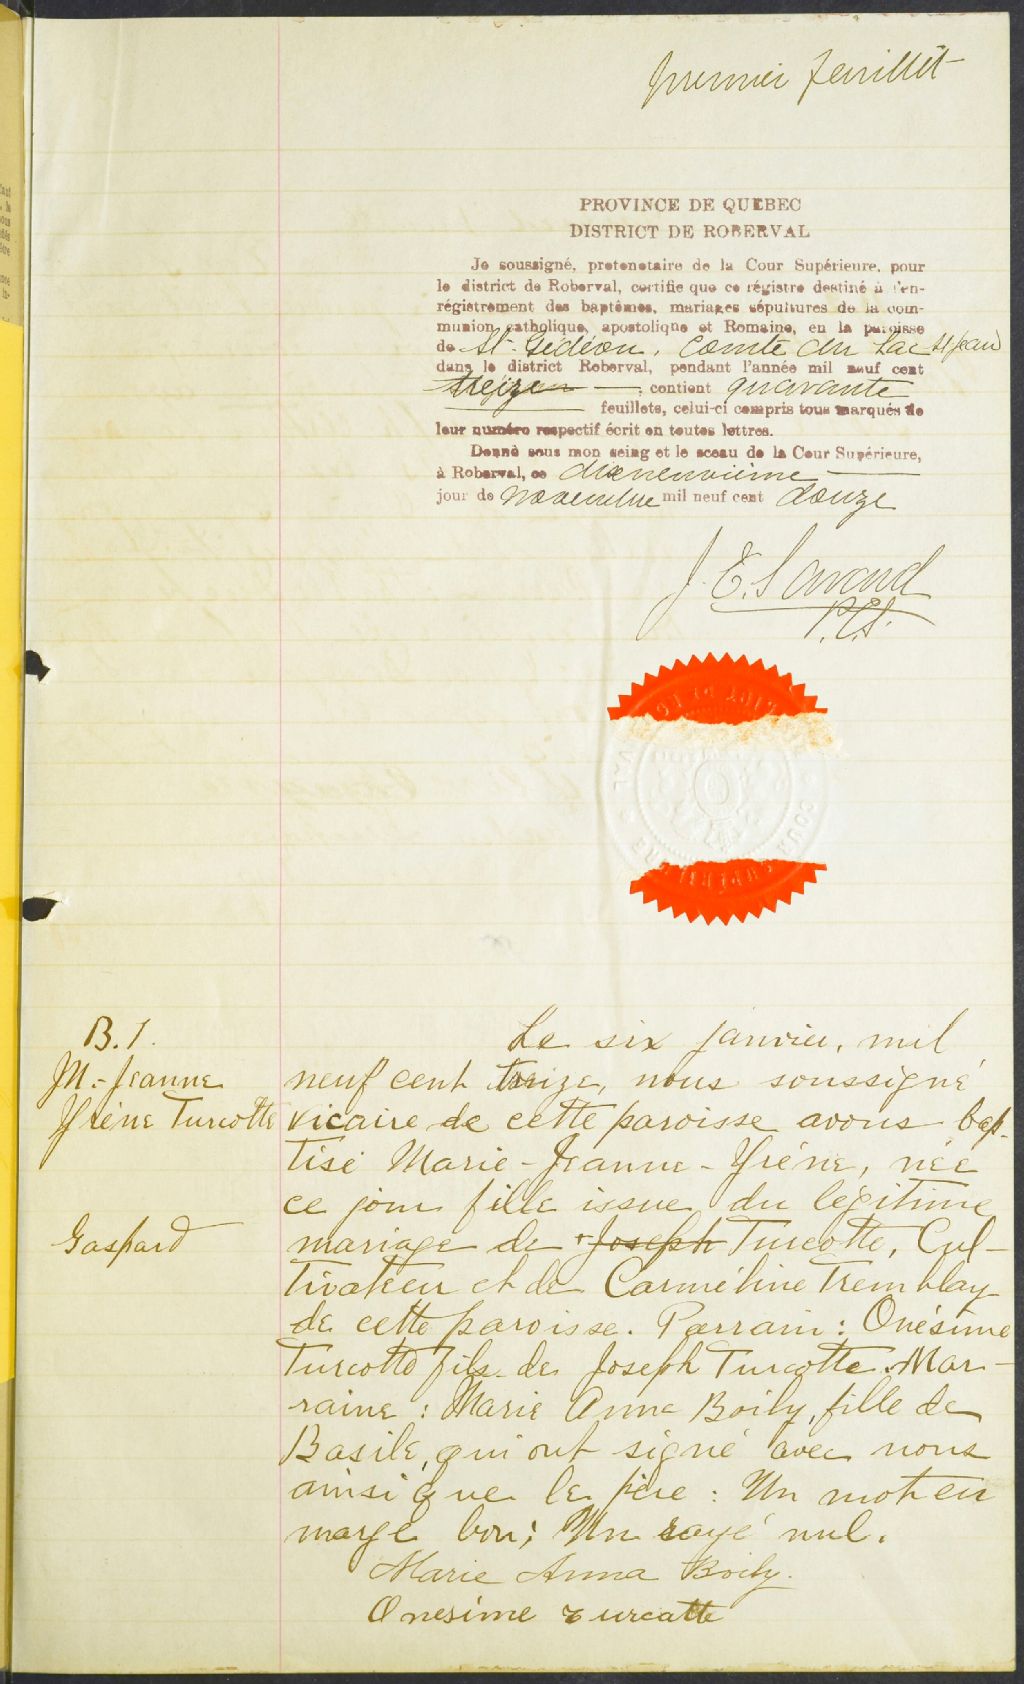 premier feuillet
PROVINCE DE QUEBEC
DISTRICT DE ROBERVAL
Je soussigné, protonotaire de la Cour Supérieure, pour
le district de Roberval, certifie que ce régistre destiné à l'en-
régistrement des baptêmes, mariages sépultures de la com-
munion catholique, apostolique et Romaine, en la paroisse
de St-Gédéon, comté du Lac St Jean
dans le district Roberval, pendant l'année mil neuf cent
treize — contient quarante
feuillets, celui-ci compris tous marqués de
leur numéro respectif écrit en toutes lettres.
Donné sous mon seing et le sceau de la Cour Supérieure,
à Roberval, ce dixneuvième
jour de novembre mil neuf cent douze
J. E. Savard
P.C.S.
B. 1.
M.-Jeanne
Yrène Turcotte
Gaspard
Le six janvier, mil
neuf cent treize, nous soussigné
vicaire de cette paroisse avons bap-
tisé Marie-Jeanne-Yrène, née
ce jour fille issue du légitime
mariage de + Joseph Turcotte, Cul-
tivateur et de Carméline Tremblay
de cette paroisse. Parrain : Onésime
Turcotte fils de Joseph Turcotte. Mar-
raine : Marie Anna Boily, fille de
Basile, qui ont signé avec nous
ainsi que le père : Un mot en
marge bon; Un rayé nul.
Marie Anna Boily.
Onesime Turcotte